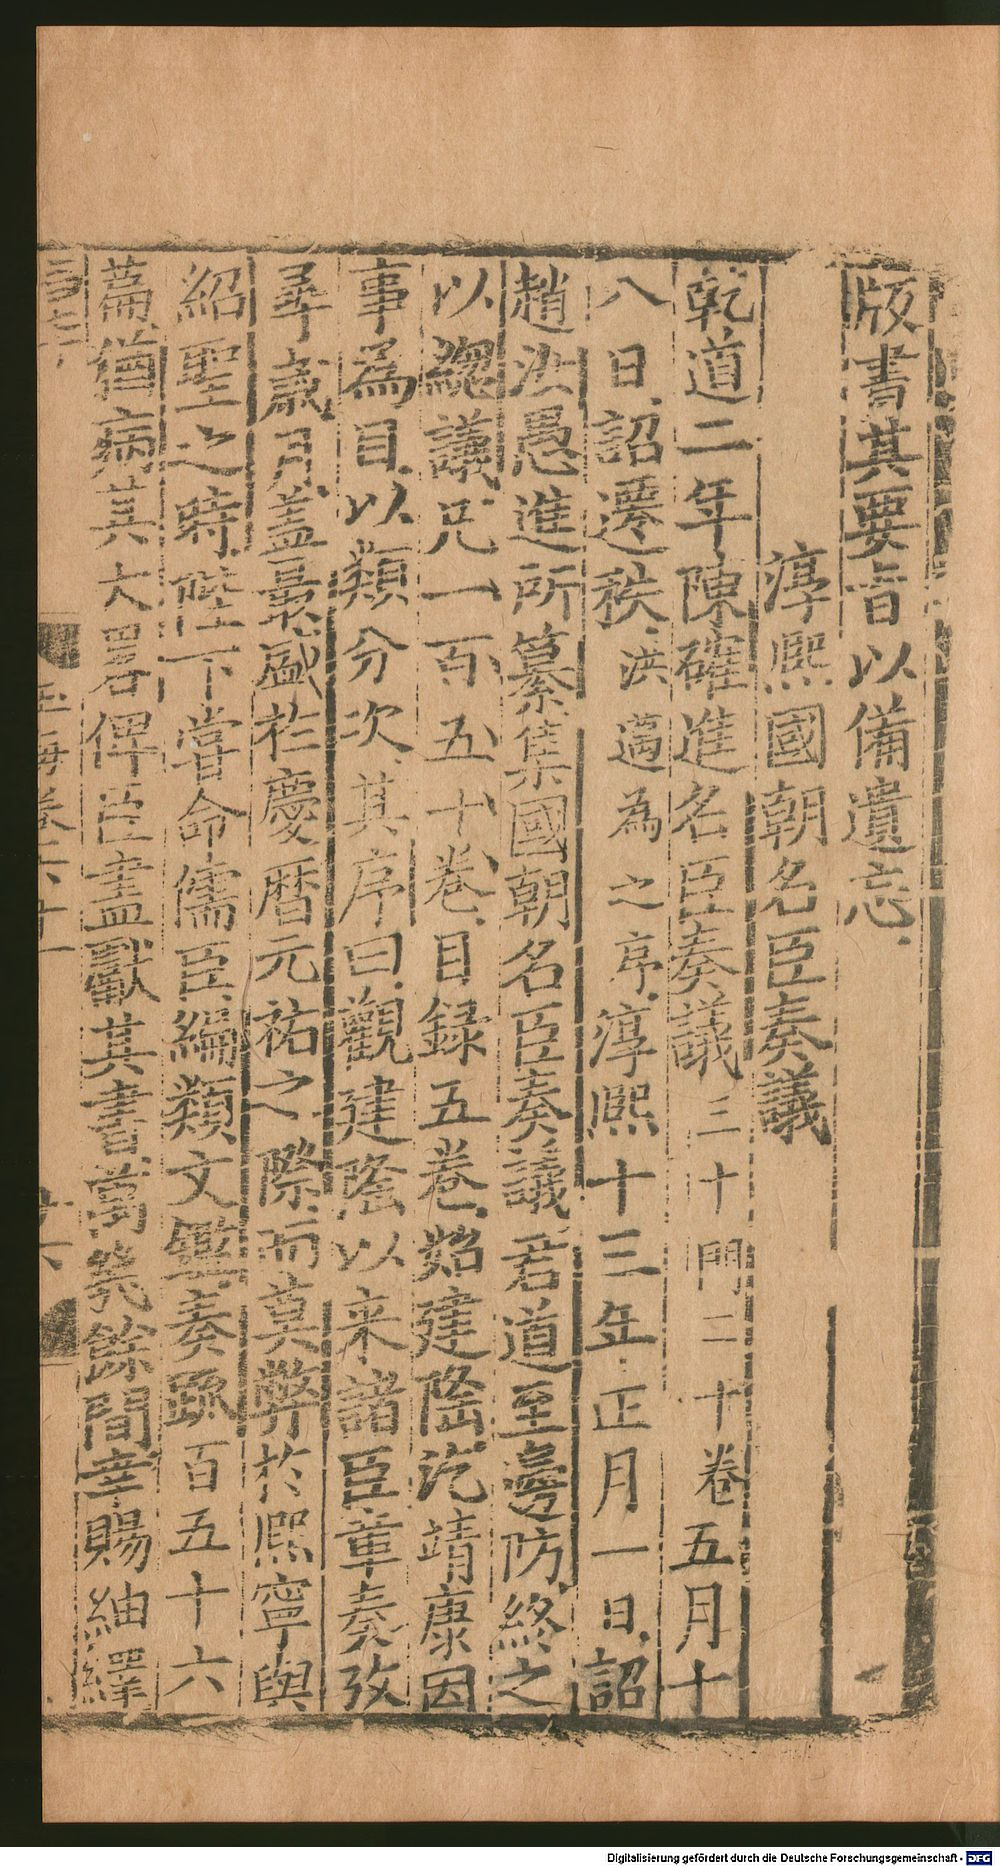 版書其要旨以備遺忘
淳熙國朝名臣奏議
乾道二年陳確進名臣奏議三十門二十卷五月十
八日詔遷秩洪邁為之序淳熙十三年正月一日詔
趙汝愚進所纂集國朝名臣奏議君道至邊防終之
以總議凡一百五十卷目録五卷始建隆迄靖康因
事為目以類分次其序曰觀建隆以来諸臣章奏攷
尋歲月盖最盛扵慶曆元祐之際而莫弊扵熙寧與
紹聖之時陛下嘗命儒臣編類文鑑奏䟽百五十六
篇猶病其大畧俾臣盡獻其書萬㡬餘閒幸賜紬繹
玉海卷六十一
Digitalisierung gefördert durch die Deutsche Forschungsgemeinschaft - DFG